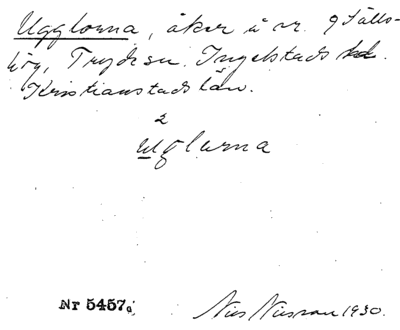 Ugglorna, åker å nr. 9 Fälls-
hög, Tryde sn. Ingelstads hd.
Kristianstads län.
2
Uglurna
Nr 5457.
Nils Nilsson 1930.